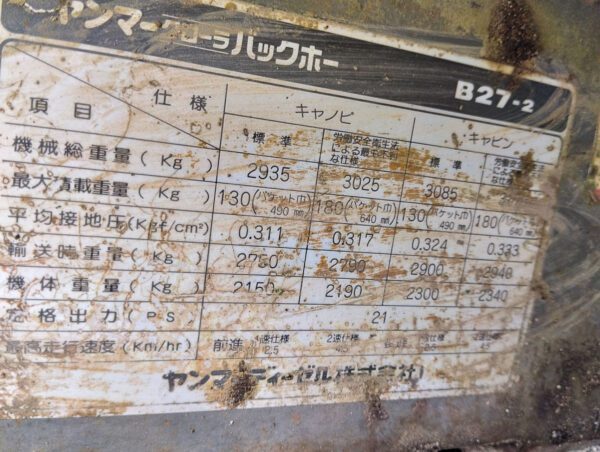 ヤンマー クローラバックホー
B27-2
項目 仕様 キャノピ キャビン
標準 労働安全衛生法 標準
機械総重量 (Kg) 2935 3025 3085
最大積載重量 (Kg) 130(バケット巾490㎜) 180(バケット巾640㎜) 130(バケット巾490㎜) 180(バケット巾640㎜)
平均接地圧(Kgf/cm²) 0.311 0.317 0.324 0.333
輸送時重量 (Kg) 2750 2790 2900 2940
機体重量 (Kg) 2150 2190 2300 2340
定格出力 (PS) 21
最高走行速度(Km/hr) 前進 1速仕様 2.5 2速仕様
ヤンマーディーゼル株式会社